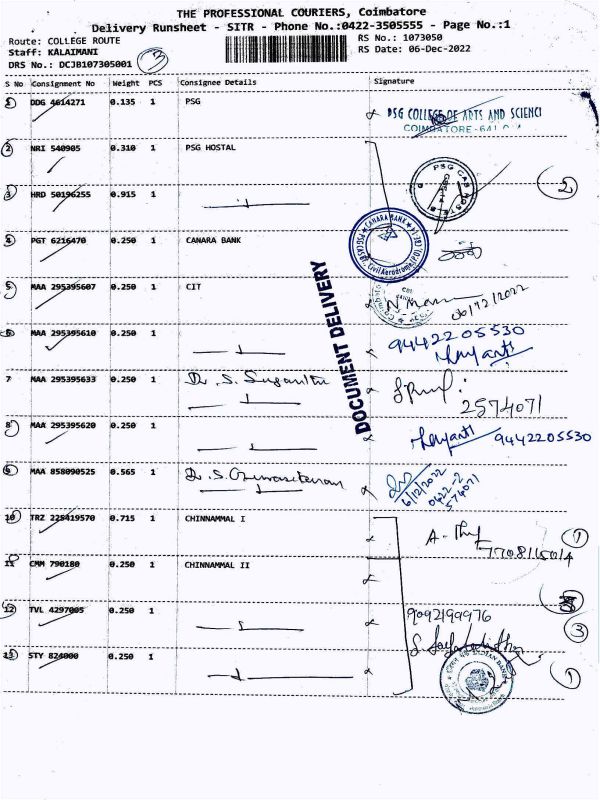 THE PROFESSIONAL COURIERS, Coimbatore
Delivery Runsheet - SITR - Phone No.:0422-3505555 - Page No.:1
Route: COLLEGE ROUTE RS No.: 1073050
Staff: KALAIMANI RS Date: 06-Dec-2022
DRS No.: DCJB107305001 3
S No Consignment No Weight PCS Consignee Details Signature
1 DDG 4614271 0.135 1 PSG
PSG COLLEGE OF ARTS AND SCIENC
COIMBATORE-641
2 NRI 540905 0.310 1 PSG HOSTAL
PSG CAS HOSTELS
2
3 HRD 50196255 0.915 1
CANARA BANK
4 PGT 6216470 0.250 1 CANARA BANK
DOCUMENT DELIVERY
5 MAA 295395607 0.250 1 CIT
06/12/2022
6 MAA 295395610 0.250 1
9442205530
7 MAA 295395633 0.250 1 Dr. S. Suganthi
2574071
8 MAA 295395620 0.250 1
9442205530
9 MAA 858090525 0.565 1 Dr. S.
6/12/2022
0422-2
574071
10 TRZ 225419570 0.715 1 CHINNAMMAL I
1
11 CMM 790180 0.250 1 CHINNAMMAL II
12 TVL 4297005 0.250 1
9092199976
3
13 STY 824000 0.250 1
INDIAN BANK
1